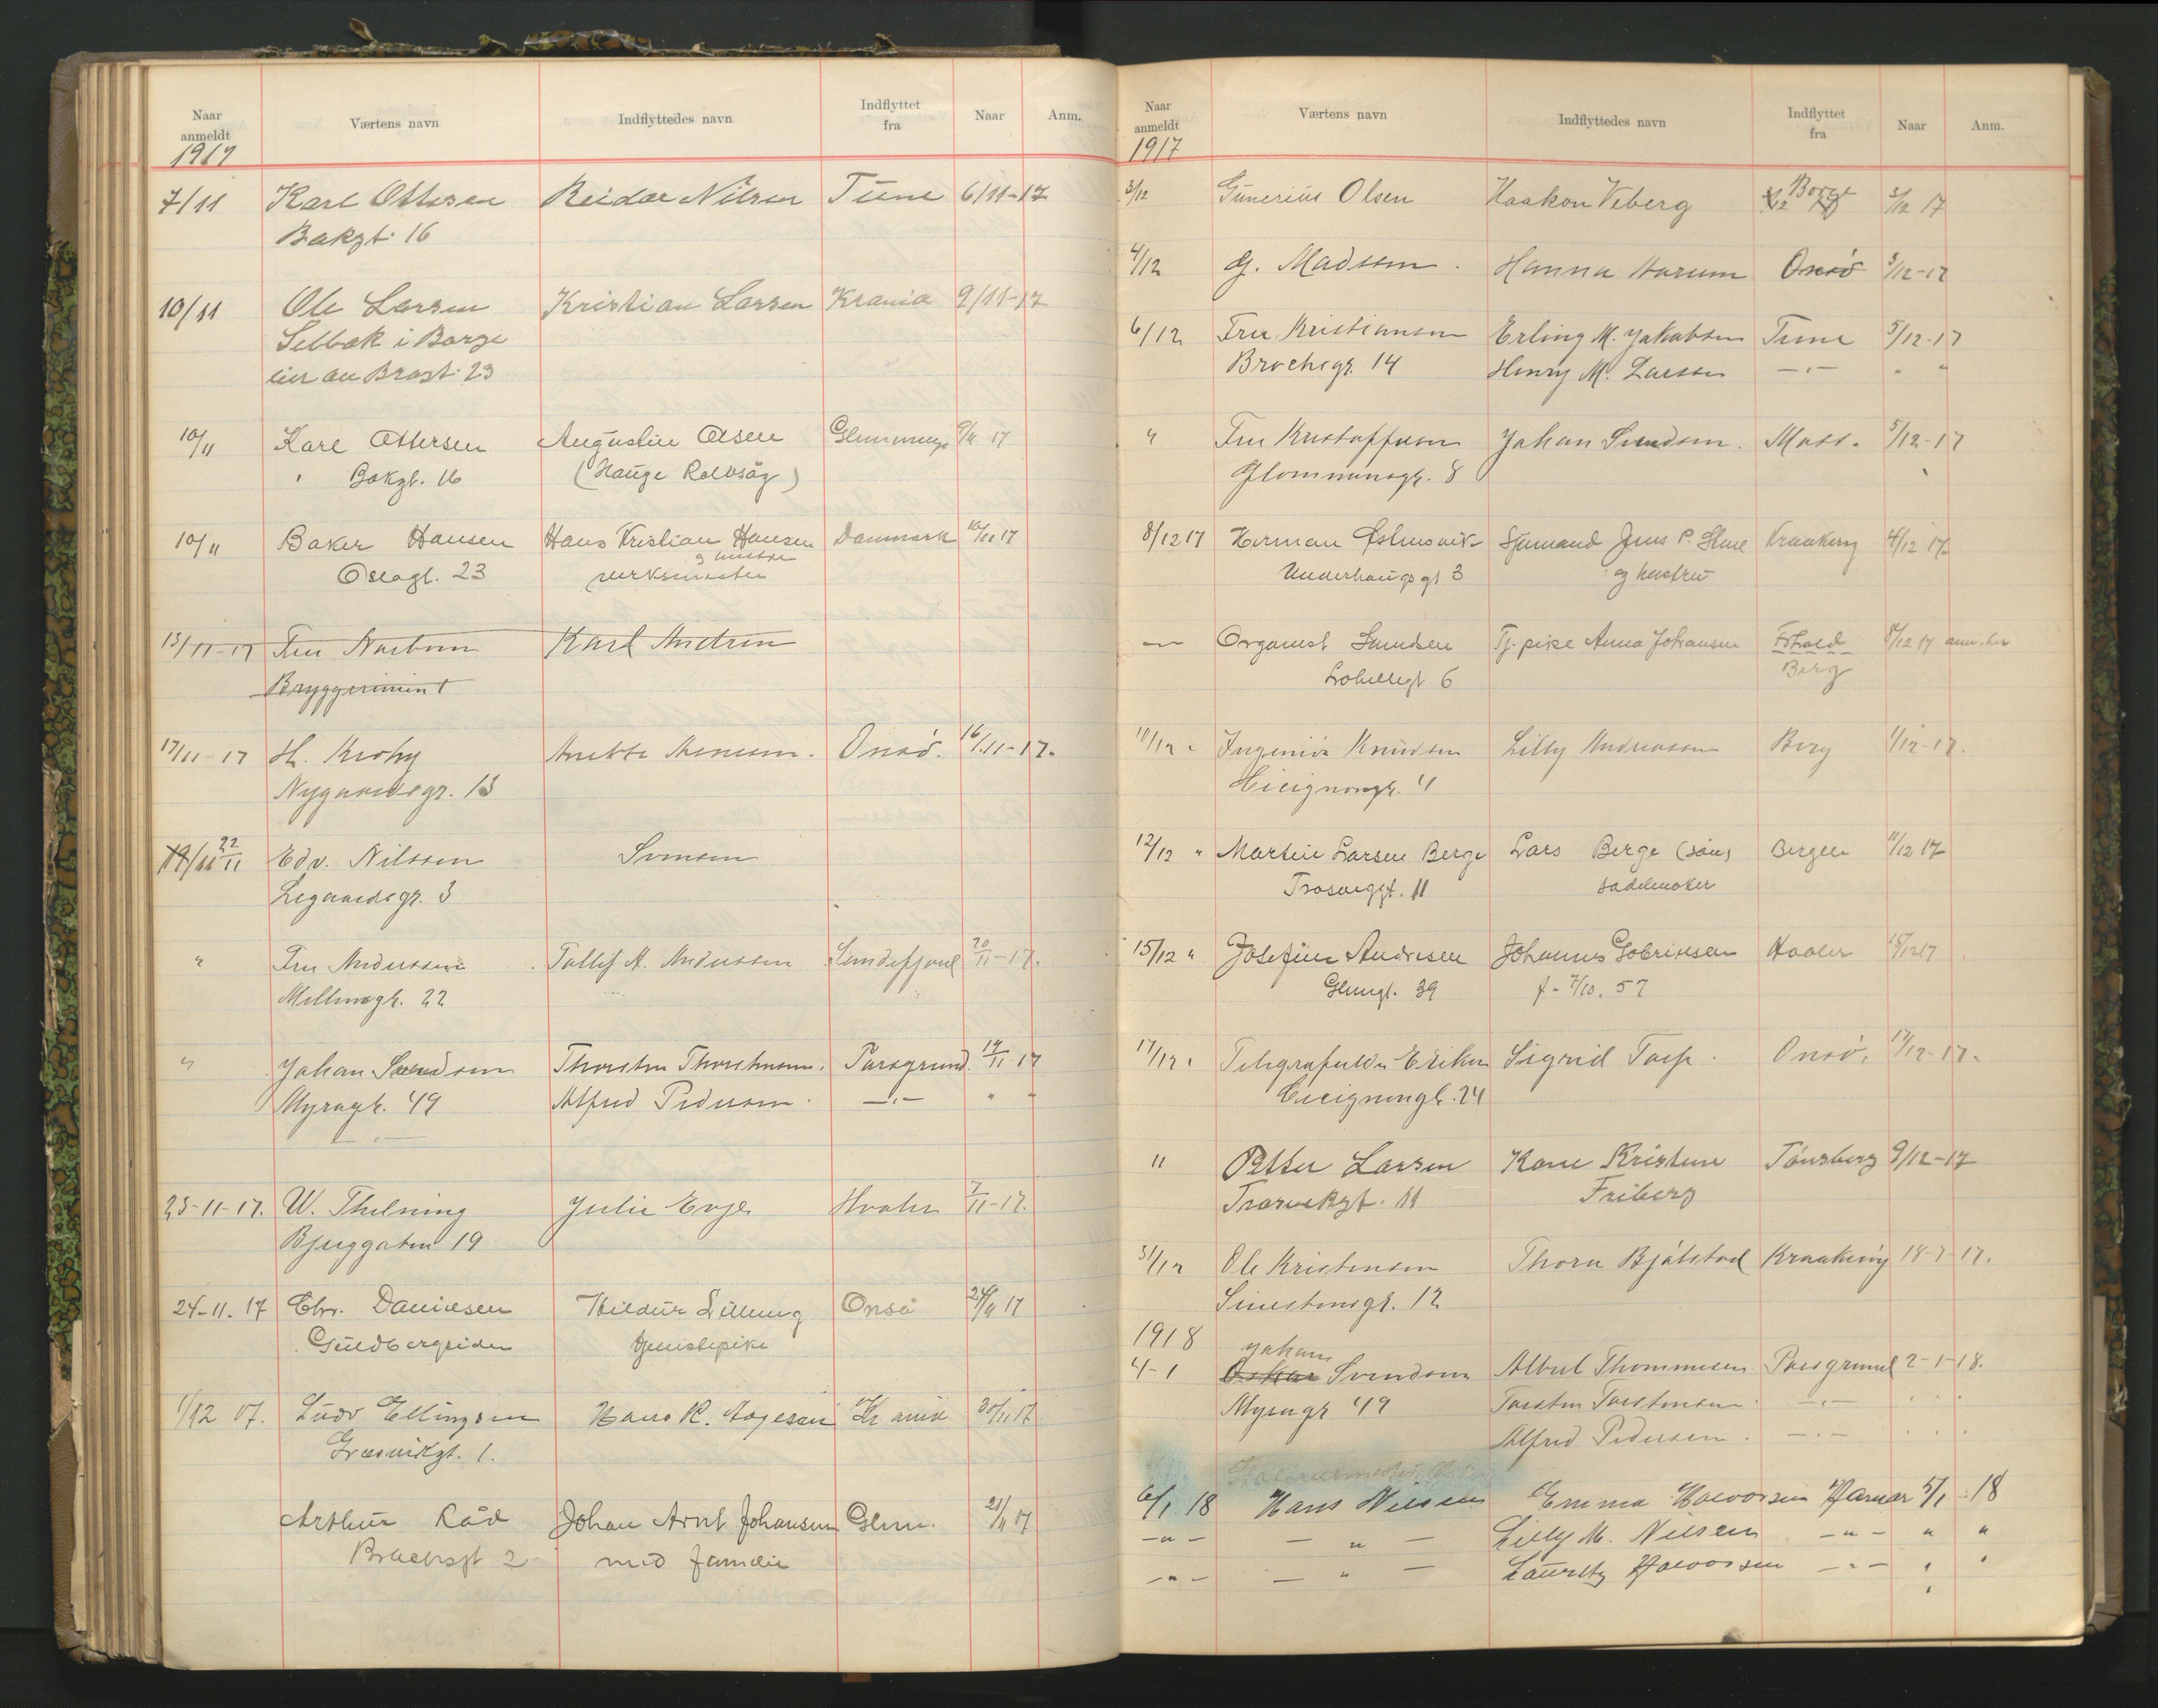 Naar anmeldt Værtens navn Indflyttedes navn Indflyttet fra Naar Anm.
1917
7/11 Karl Ottersen Reidar Nilsen Tune 6/11-17
Bakgt. 16
10/11 Ole Larsen Kristian Larsen Krania 9/11-17
Selbak i Borge
eier av Brogt. 23
10/11 Karl Ottersen Augustin Olsen Glemminge 9/11 17
" Bakgt. 16 (Hauge Rolvsøy)
10/11 Baker Hansen Hans Kristian Hansen Danmark 10/11 17
og hustru
Oseagt. 23 verksmester
13/11-17 Fru Karl
Bryggeriment
17/11-17 H. Krohg Onsö. 16/11-17.
Nygaardsgr. 13
19/11 22/11 Edv. Nilssen Svensen
Ligaardsgr. 3
" Fru Anderssen Tallef A. Anderssen Sandefjord 20/11-17.
Mellingt. 22
" Johan Svendsen Thorsten Thorstensen. Porsgrund. 19/11 17
Myragt. 49 Alfred Pedersen. -"- " "
23-11-17. W. Thelning Julie Evje Hvaler 7/11-17.
Bjerggaten 19
24-11.17 Chr. Danielsen Hildur Lilleng Onsö 24/11 17
Guldbergsiden tjenestepike
1/12 17. Ludv Ellingsen Hans R. Aagesen Kr ania 30/11 17
Græsvikgt. 1.
Arthur Råd Johan Arnt Johansen Glem. 21/11 17
Brochsgt 2 med familie
Naar anmeldt Værtens navn Indflyttedes navn Indflyttet fra Naar Anm.
1917
3/12 Gunerius Olsen Haakon Veberg Borge 3/12 17
4/12 G. Madssen. Hanna Harum Onsö 3/12-17
6/12 Fru Kristiansen Erling M. Jakobsen Tune 5/12-17
Brochsgt. 14 Henry M. Larssen -"- " "
" Fru Kristoffersen Johan Sundsen. Moss. 5/12-17
Glommensgt. 8
8/12 17 Herman Østensvik Sjømand Jens P. Krakerøy 4/12 17
Underhaugsgt 3 og hustru
— Organist Tj. pike Anna Johansen F.hald 8/12 17 anm. her
Lohellegt 6 Berg
11/12 " Ingeniør Knudsen Lilly Andreassen Berg 1/12-17.
Cicignongt. 4
12/12 " Martin Larsen Berge Lars Berge (søn) Bergen 11/12 17
Trosviggt. 11 sadelmaker
15/12 " Josefine Andresen Johannes Gabrielsen Haaler 15/12 17
Glemgt. 39 f. 7/10. 57
17/12 " Telegrafbud Eriksen Sigrid Torp. Onsö. 17/12-17.
Cicignongt. 24
" Petter Larsen Kaare Kristian Tønsberg 9/12-17
Trosvikgt. 11 Friberg
31/12 Ole Kristensen Thora Bjølstad Kraakeröy 18-7-17.
Linestensgt. 12
1918 Johan
4-1 Oskar Svendsen Albert Thommesen Porsgrund 2-1-18.
Myragt 49 Torsten Torstensen -"- " "
Alfred Pedersen. -"- " "
6/1 18 Hans Nilsen Emma Halvorsen Hamar 5/1-18
-"- -"- Lilly M. Nilsen -"- " "
-"- -"- Lauritz Halvorsen -"- " "